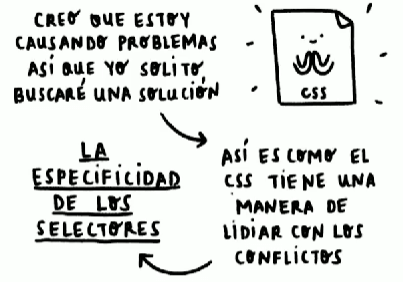 CREO QUE ESTOY
CAUSANDO PROBLEMAS
ASÍ QUE YO SOLITO
BUSCARÉ UNA SOLUCIÓN
CSS
ASÍ ES COMO EL
CSS TIENE UNA
MANERA DE
LIDIAR CON LOS
CONFLICTOS
LA
ESPECIFICIDAD
DE LOS
SELECTORES